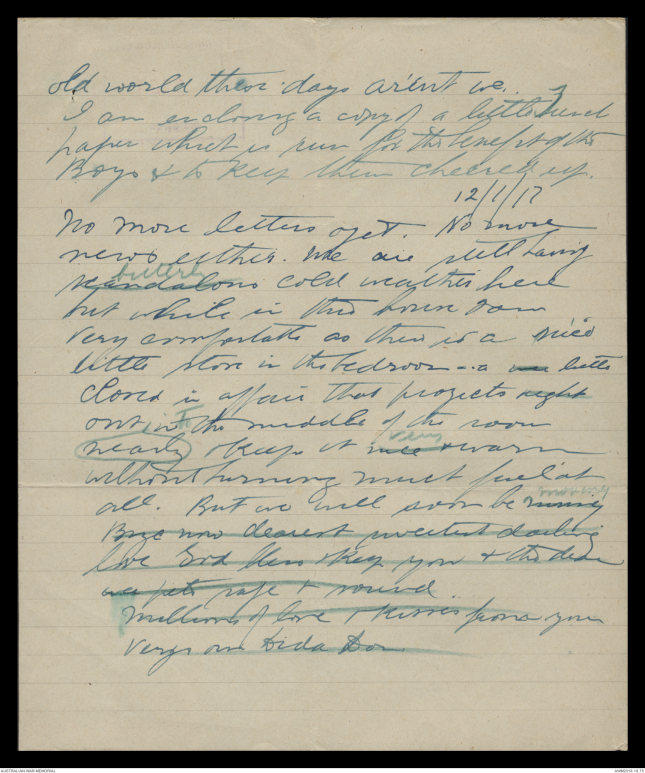 old world these days ar'ent we.
I am enclosing a copy of a little
paper which is run for the benefit of the
Boys & to keep them cheered up.
12/1/17
No more letters yet. No more
news either. We are still having
bitterly
scandalous cold weather here
but while in this house I am
very comfortable as there is a nice
little stove in the bedroom - a little
closed in affair that projects right
out in the middle of the room
nearly & keeps it nice & warm
very
without burning much fuel at
all. But we will soon be moving
moving
Bye now dearest sweetest darling
love God bless & keep you & the dear
wee pets safe & sound
Millions of love & kisses from your
very own Dida Don
AUSTRALIAN WAR MEMORIAL